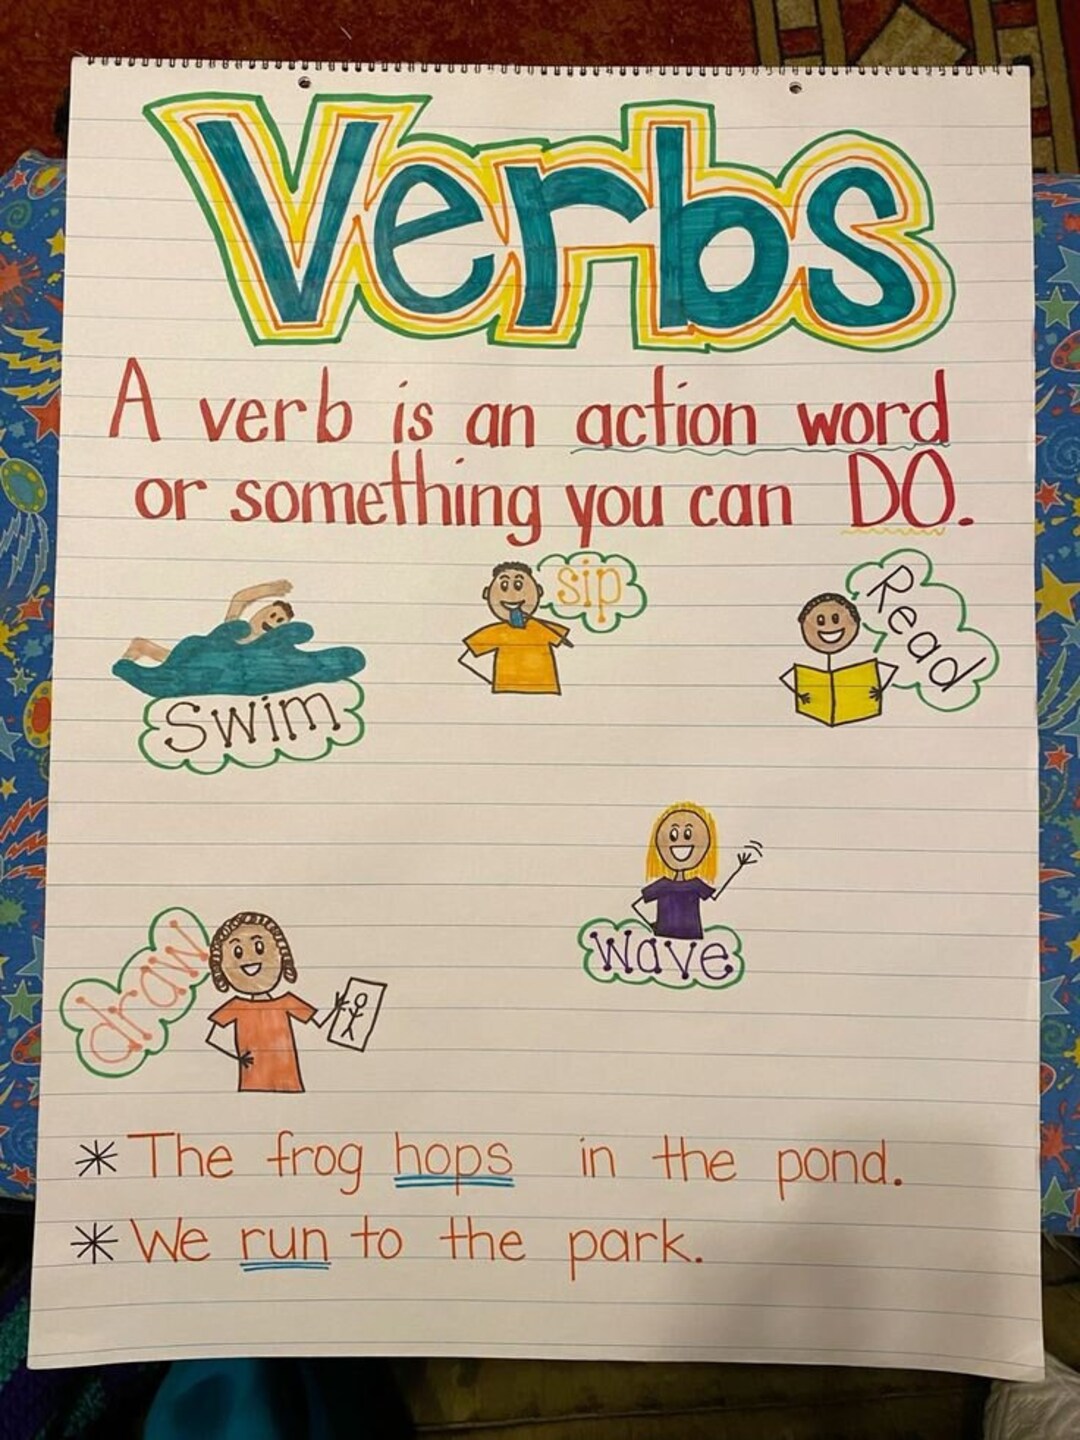 Verbs
A verb is an action word
or something you can DO.
sip
Read
Swim
Wave
draw
* The frog hops in the pond.
* We run to the park.